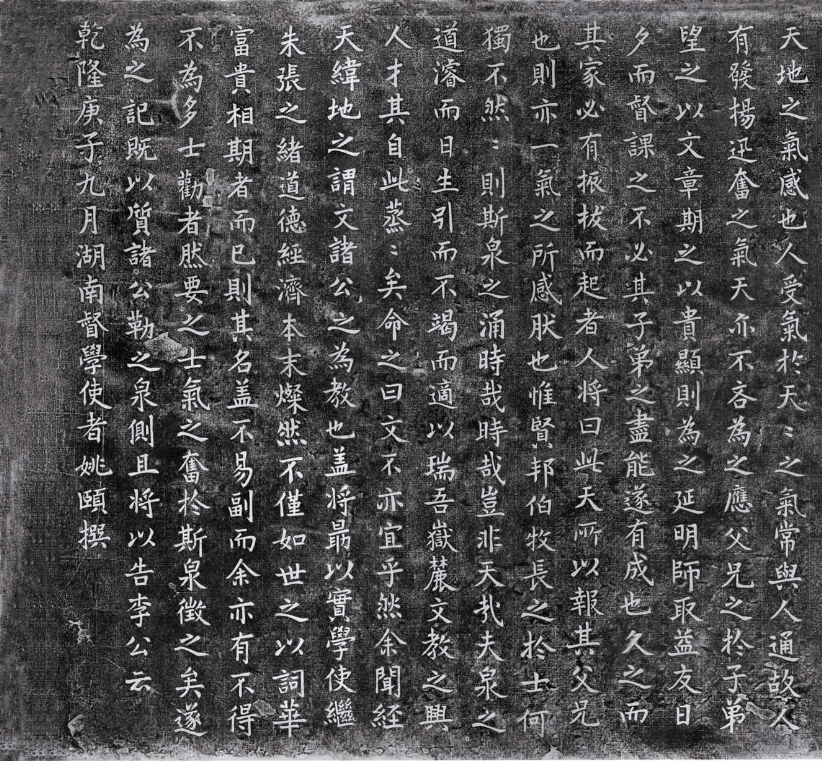 天地之氣感也人受氣於天〻之氣常與人通故人
有發揚迅奮之氣天亦不吝為之應父兄之於子弟
望之以文章期之以貴顯則為之延明師取益友日
夕而督課之不必其子弟之盡能遂有成也久之而
其家必有振拔而起者人將曰此天所以報其父兄
也則亦一氣之所感肰也惟賢邦伯牧長之於士何
獨不然〻則斯泉之涌時哉時哉豈非天哉夫泉之
道濬而日生引而不竭而適以瑞吾嶽麓文教之興
人才其自此蒸〻矣命之曰文不亦宜乎然余聞経
天緯地之謂文諸公之為教也盖將勗以實學使繼
朱張之緒道德經濟本末燦然不僅如世之以詞華
富貴相期者而已則其名盖不易副而余亦有不得
不為多士勸者肰要之士氣之奮於斯泉徵之矣遂
為之記既以質諸公勒之泉側且将以告李公云
乾隆庚子九月湖南督學使者姚頤撰